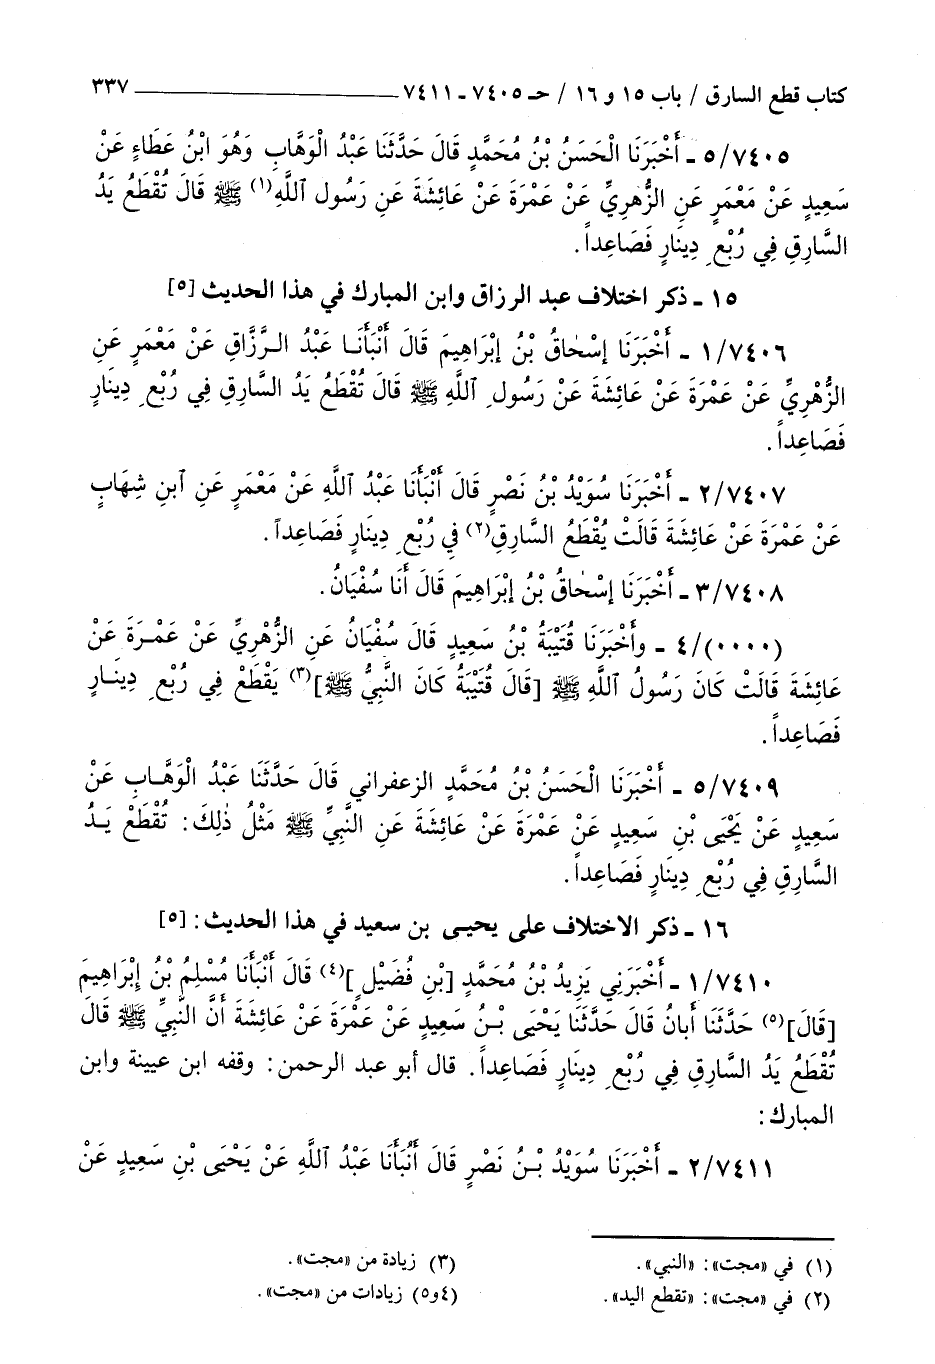 كتاب قطع السارق / باب ١٥ و ١٦ / حـ ٧٤٠٥ - ٧٤١١ ٣٣٧
٥/٧٤٠٥ - أَخْبَرَنَا الْحَسَنُ بْنُ مُحَمَّدٍ قَالَ حَدَّثَنَا عَبْدُ الْوَهَّابِ وَهُوَ ابْنُ عَطَاءٍ عَنْ
سَعِيدٍ عَنْ مَعْمَرٍ عَنِ الزُّهْرِيِّ عَنْ عَمْرَةَ عَنْ عَائِشَةَ عَنِ رَسُولِ ٱللَّهِ(١) ﷺ قَالَ تُقْطَعُ يَدُ
السَّارِقِ فِي رُبْعِ دِينَارٍ فَصَاعِداً.
١٥ - ذكر اختلاف عبد الرزاق وابن المبارك في هذا الحديث [٥]
١/٧٤٠٦ - أَخْبَرَنَا إِسْحَاقُ بْنُ إِبْرَاهِيمَ قَالَ أَنْبَأَنَا عَبْدُ الرَّزَّاقِ عَنْ مَعْمَرٍ عَنِ
الزُّهْرِيِّ عَنْ عَمْرَةَ عَنْ عَائِشَةَ عَنْ رَسُولِ ٱللَّهِ ﷺ قَالَ تُقْطَعُ يَدُ السَّارِقِ فِي رُبْعِ دِينَارٍ
فَصَاعِداً.
٢/٧٤٠٧ - أَخْبَرَنَا سُوَيْدُ بْنُ نَصْرٍ قَالَ أَنْبَأَنَا عَبْدُ ٱللَّهِ عَنْ مَعْمَرٍ عَنِ ٱبنِ شِهَابٍ
عَنْ عَمْرَةَ عَنْ عَائِشَةَ قَالَتْ يُقْطَعُ السَّارِقِ(٢) فِي رُبْعِ دِينَارٍ فَصَاعِداً.
٣/٧٤٠٨ - أَخْبَرَنَا إِسْحَاقُ بْنُ إِبْرَاهِيمَ قَالَ أَنَا سُفْيَانُ.
(٠٠٠٠)/٤ - وأَخْبَرَنَا قُتَيْبَةُ بْنُ سَعِيدٍ قَالَ سُفْيَانُ عَنِ الزُّهْرِيِّ عَنْ عَمْرَةَ عَنْ
عَائِشَةَ قَالَتْ كَانَ رَسُولُ ٱللَّهِ ﷺ [قَالَ قُتَيْبَةُ كَانَ النَّبِيُّ ﷺ](٣) يَقْطَعُ فِي رُبْعِ دِينَارٍ
فَصَاعِداً.
٥/٧٤٠٩ - أَخْبَرَنَا الْحَسَنُ بْنُ مُحَمَّدٍ الزعفراني قَالَ حَدَّثَنَا عَبْدُ الْوَهَّابِ عَنْ
سَعِيدٍ عَنْ يَحْيَى بْنِ سَعِيدٍ عَنْ عَمْرَةَ عَنْ عَائِشَةَ عَنِ النَّبِيِّ ﷺ مَثْلُ ذٰلِكَ: تُقْطَعُ يَدُ
السَّارِقِ فِي رُبْعِ دِينَارٍ فَصَاعِداً.
١٦ - ذكر الاختلاف على يحيى بن سعيد في هذا الحديث: [٥]
١/٧٤١٠ - أَخْبَرَنِي يَزِيدُ بْنُ مُحَمَّدٍ [بْنِ فُضَيْلٍ](٤) قَالَ أَنْبَأَنَا مُسْلِمُ بْنُ إِبْرَاهِيمَ
[قَالَ](٥) حَدَّثَنَا أَبانُ قَالَ حَدَّثَنَا يَحْيَى بْنُ سَعِيدٍ عَنْ عَمْرَةَ عَنْ عَائِشَةَ أَنَّ النَّبِيِّ ﷺ قَالَ
تُقْطَعُ يَدُ السَّارِقِ فِي رُبْعِ دِينَارٍ فَصَاعِداً. قال أبو عبد الرحمن: وقفه ابن عيينة وابن
المبارك:
٢/٧٤١١ - أَخْبَرَنَا سُوَيْدُ بْنُ نَصْرٍ قَالَ أَنْبَأَنَا عَبْدُ ٱللَّهِ عَنْ يَحْيَى بْنِ سَعِيدٍ عَنْ
(١) في «مجت»: «النبي».
(٢) في «مجت»: «تقطع اليد».
(٣) زيادة من «مجت».
(٤و٥) زيادات من «مجت».